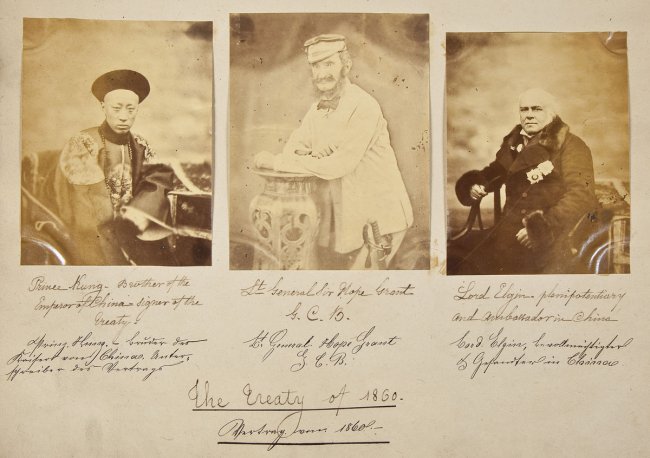 Prince Kung - Brother of the
Emperor of China - signer of the
treaty.
Prinz Kung - bruder des
Kaisers von China Unter,
schreiber des Vertrags
Lt General Sir Hope Grant
G. C. B.
Lt. General Hope Grant
G. C. B.
Lord Elgin - plenipotentiary
and ambassador in China
Lord Elgin, bevollmächtigter
& Gesandter in China
The Treaty of 1860.
Vertrag vom 1860.-